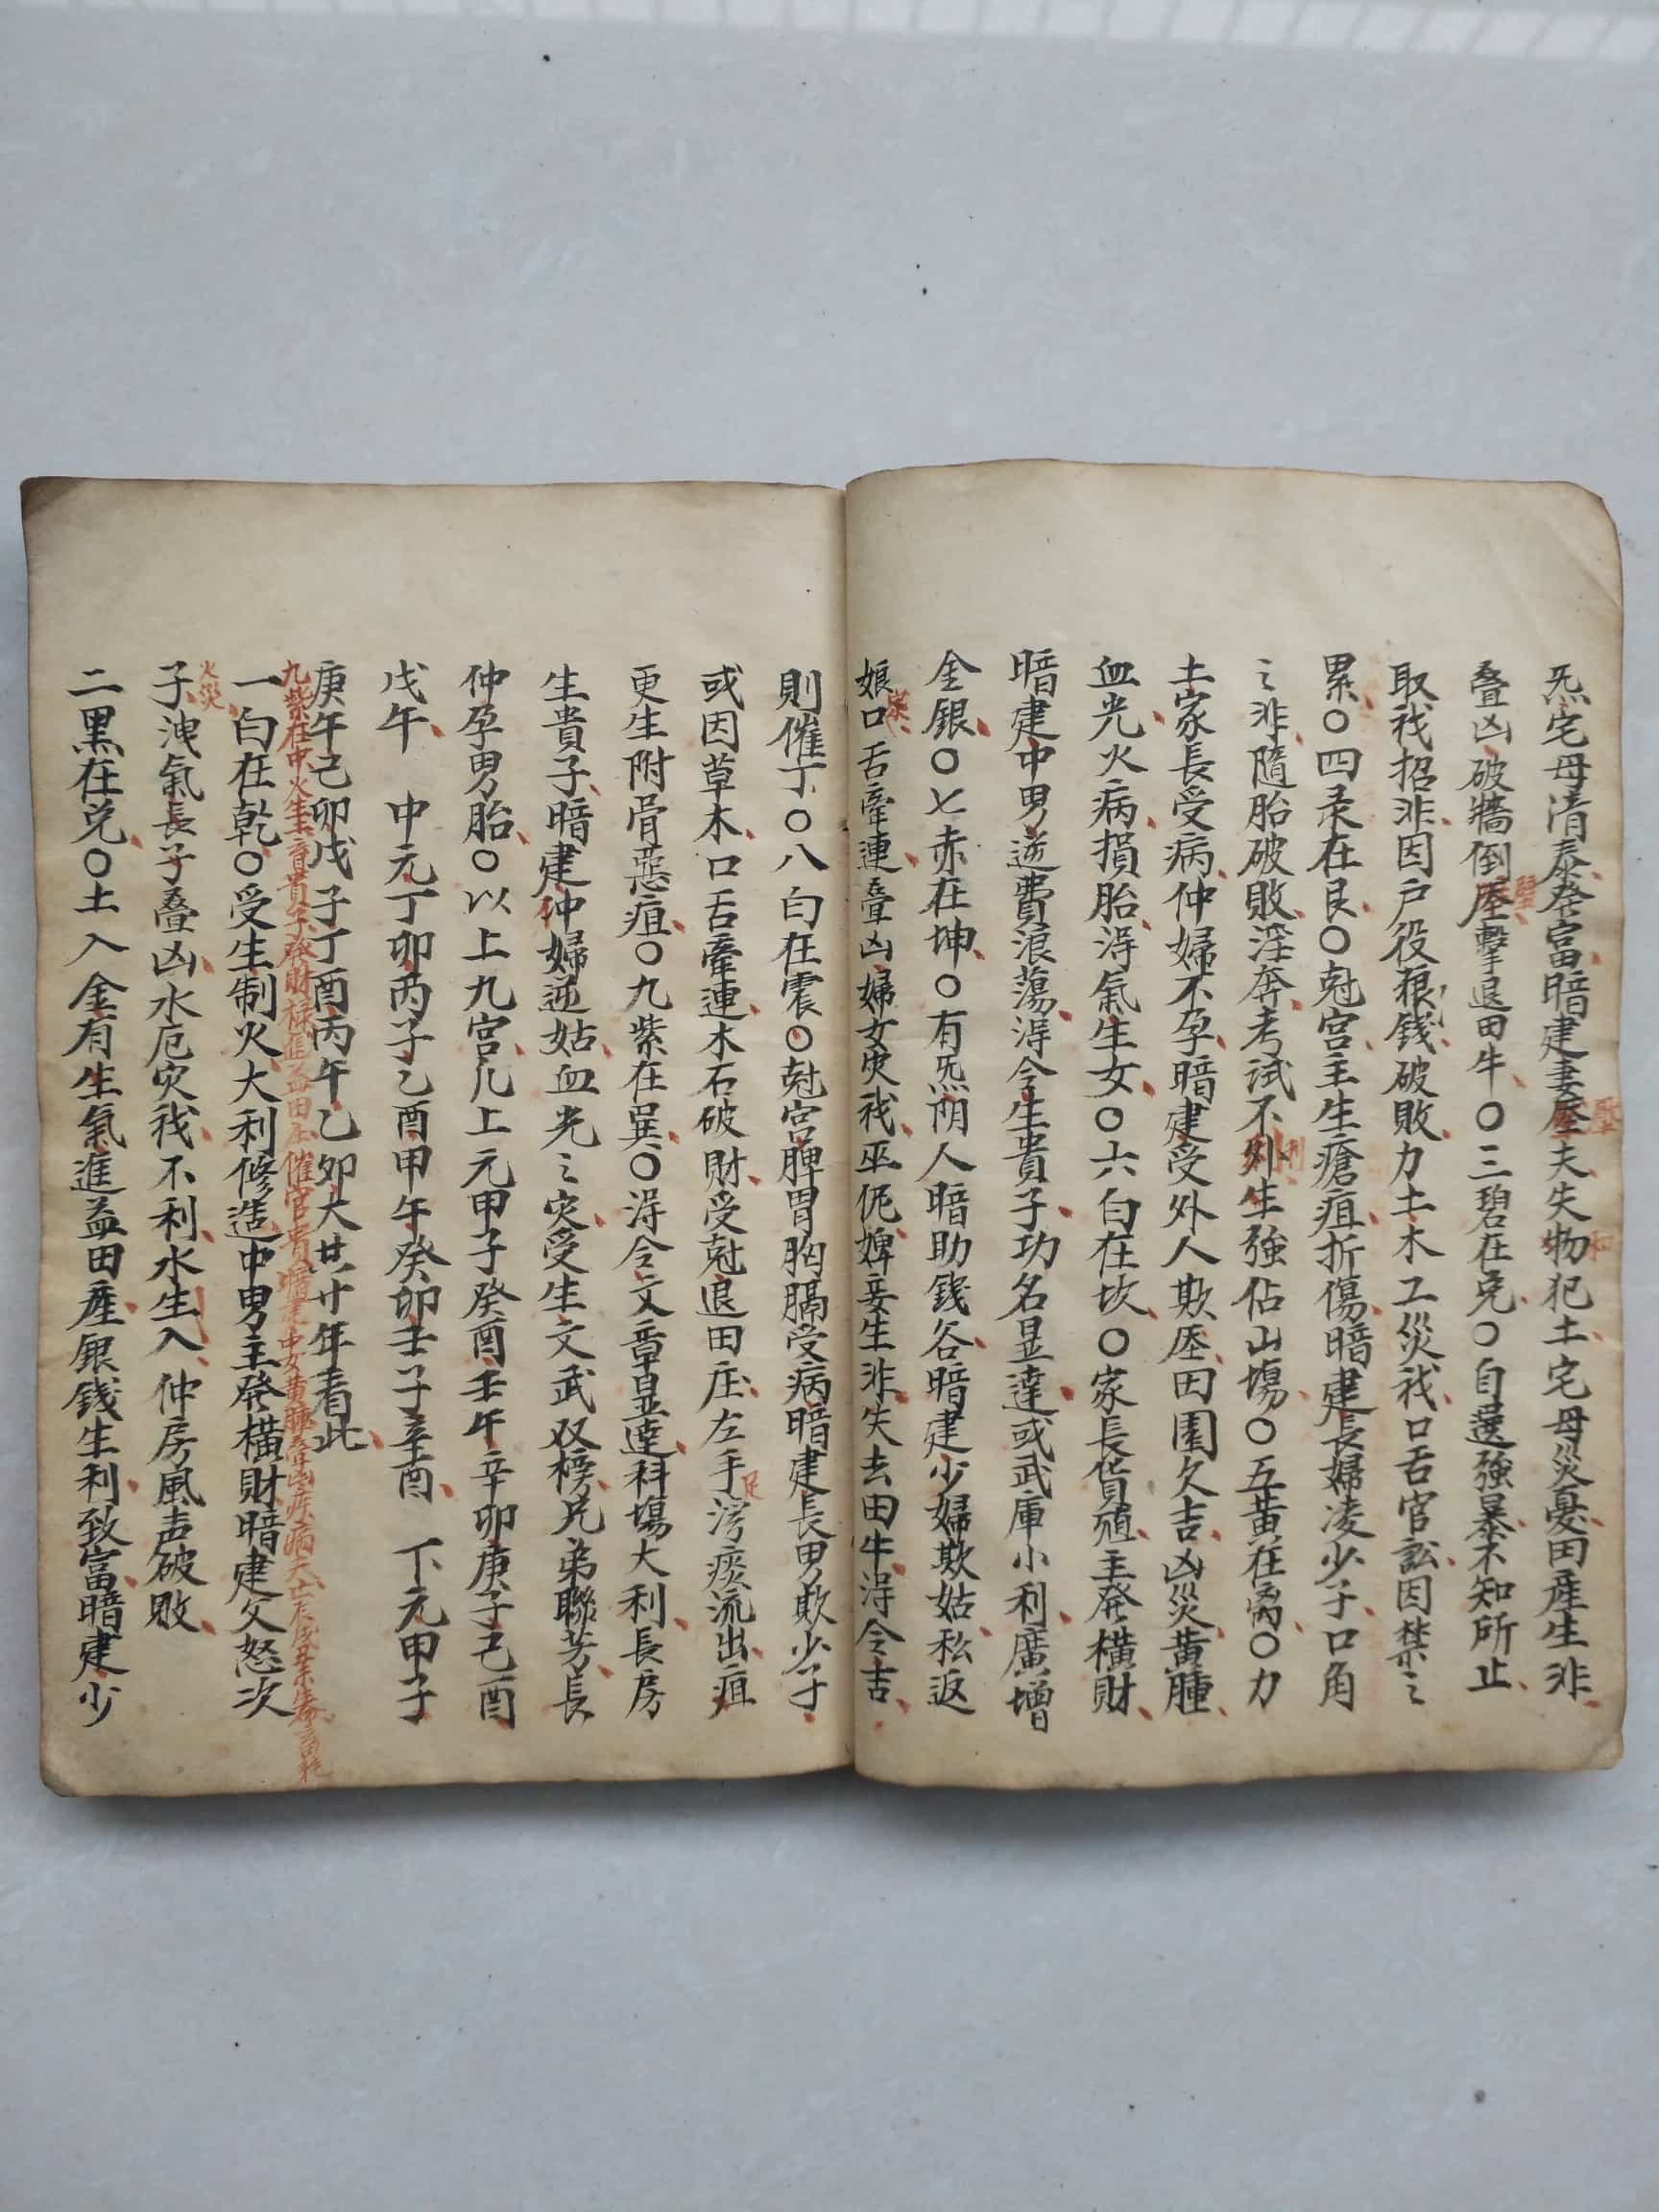 炁宅母清泰發富暗建妻壓夫失物犯土宅母災憂田産生非
疊凶破牆倒壓擊退田牛〇三碧在兌〇自還強暴不知所止
取戕招非因戶役狼錢破敗力土木工災戕口舌官訟因禁之
累〇四录在艮〇尅宮主生瘡疽折傷暗建長婦凌少子口角
之非隨胎破敗淫奔考試不列生強佔山塲〇五黃在离〇力
土家長受病仲婦不孕暗建受外人欺壓田園欠吉凶災黃腫
血光火病損胎淂氣生女〇六白在坎〇家長貨殖主發橫財
暗建中男逆費浪蕩淂令生貴子功名显達或武庫小利廣增
金銀〇七赤在坤〇有炁陰人暗助錢谷暗建少婦欺姑私返
娘口舌牽連疊凶婦女灾戕巫伲婢妾生非失去田牛淂令吉
則催丁〇八白在震〇尅宮脾胃胸膈受病暗建長男欺少子
或因草木口舌牽連木石破財受尅退田庄左手湾痰流出疽
更生附骨惡疽〇九紫在巽〇淂令文章显達科塲大利長房
生貴子暗建仲婦逆姑血光之灾受生文武双榜兄弟聯芳長
仲孕男胎〇以上九宮凡上元甲子癸酉壬午辛卯庚子己酉
戊午　中元丁卯丙子乙酉甲午癸卯壬子辛酉　下元甲子
庚午己卯戊子丁酉丙午乙卯大廿十年看此
九紫在中火生
一白在乾〇受生制火大利修造中男主發橫財暗建父怒次
火災
子洩氣長子疊凶水厄灾戕不利水生入仲房風声破敗
二黑在兌〇土入金有生氣進益田産銀錢生利致富暗建少